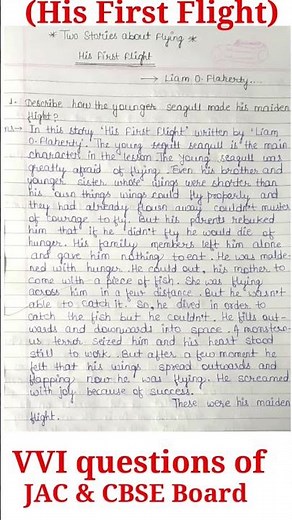 (His First Flight)
* Two Stories about Flying *
His First Flight
→ Liam O. Flaherty...
1. Describe how the younger seagull made his maiden
flight?
Ans→ In this story 'His First Flight' written by 'Liam
O. Flaherty'. The young segull seagull is the main
character in the lesson. The young seagull was
greatly afraid of flying. Even his brother and
younger sister whose wings were shorter than
his own things wings could fly poperly and
they had already flown away couldn't muster
of courage to fly. But his parents rebuked
him that if he didn't fly he would die of
hunger. His family members left him alone
and gave him nothing to eat. He was madde-
ned with hunger. He could out, his mother to
come with a piece of fish. She was flying
across him in a few distance. But he wasn't
able to catch it. So, he dived in order to
catch the fish but he couldn't. He fills out-
wards and downwards into space. A monstero-
us terror seized him and his heart stood
still to work. But after a few moment he
felt that his wings spread outwards and
flapping now he was flying. He screamed
with joy because of success.
These were his maiden
flight.
VVI questions of
JAC & CBSE Board